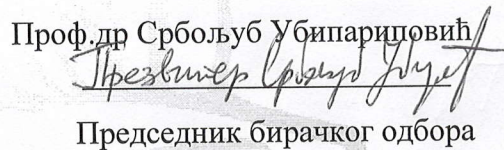 Проф.др Србољуб Убипариповић
Презвитер Србољуб Убип
Председник бирачког одбора